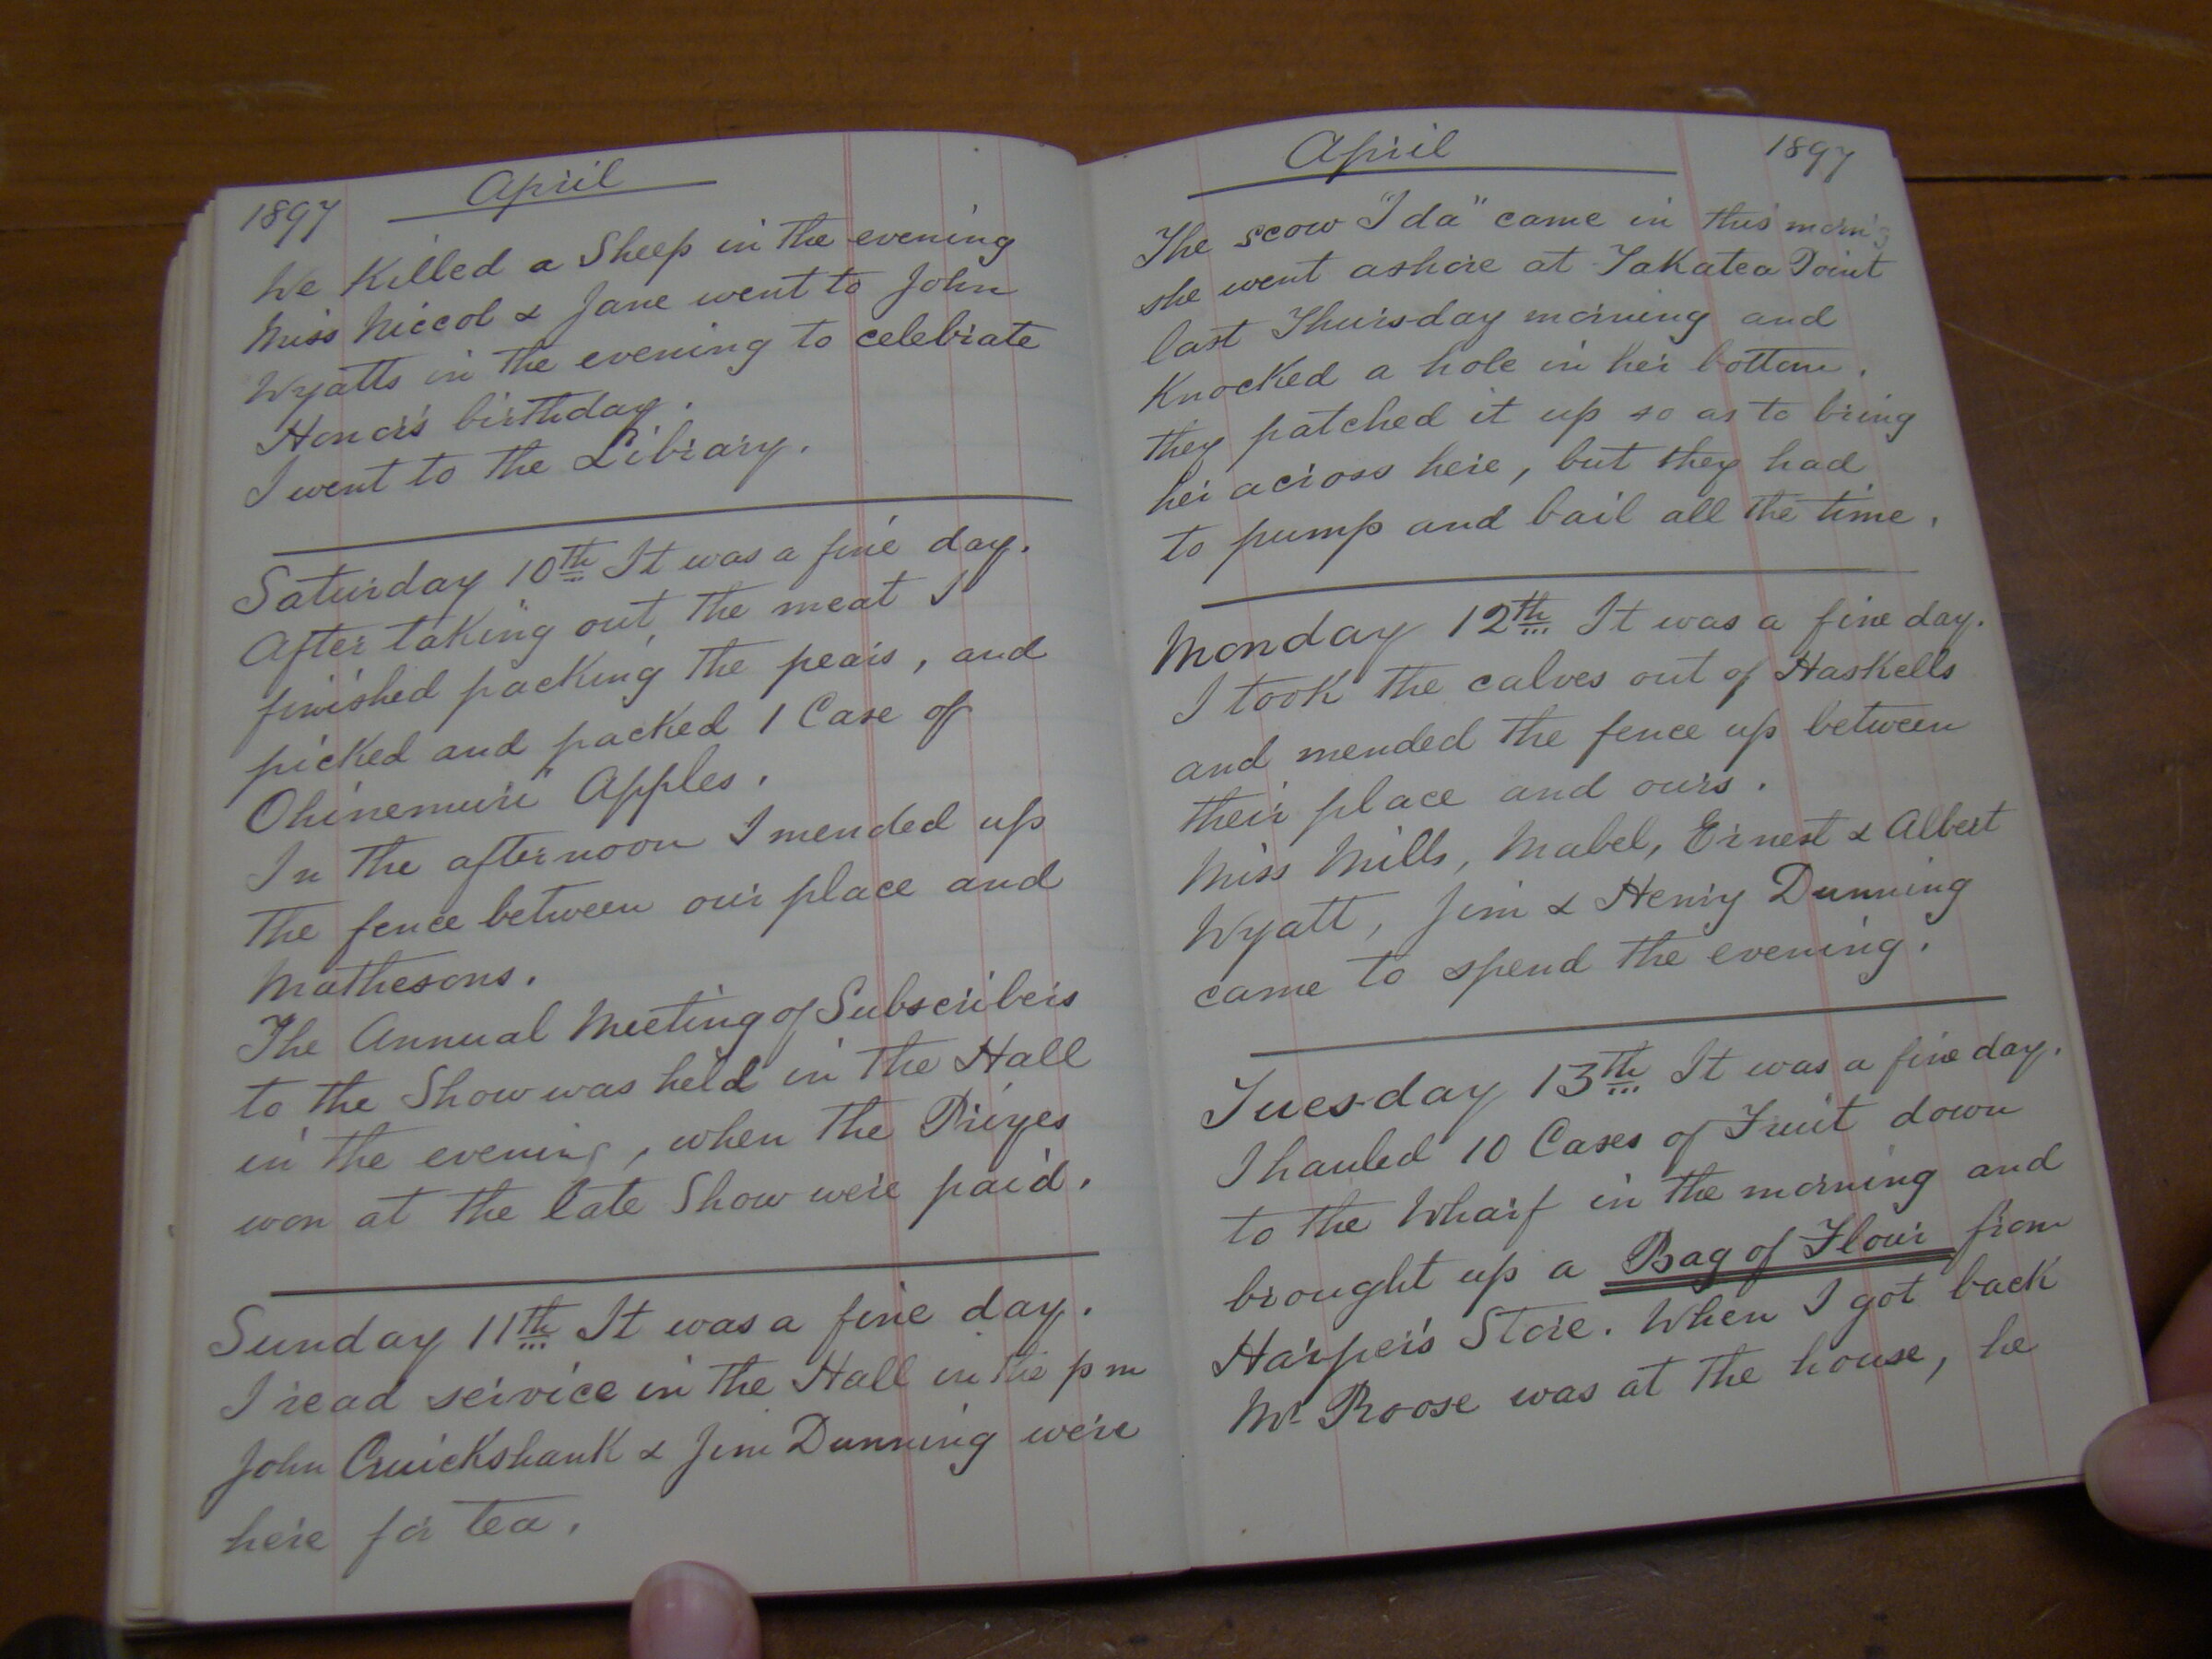 1897 April
We Killed a Sheep in the evening
Miss Niccol & Jane went to John
Wyatts in the evening to celebrate
Honor's birthday.
I went to the Library.
Saturday 10th It was a fine day.
After taking out the meat I
finished packing the pears, and
picked and packed 1 Case of
Ohinemuri Apples.
In the afternoon I mended up
the fence between our place and
Mathesons.
The Annual Meeting of Subscribers
to the Show was held in the Hall
in the evening, when the Prizes
won at the late Show were paid.
Sunday 11th It was a fine day.
I read service in the Hall in the p m
John Cruickshank & Jim Dunning were
here for tea.
April 1897
The scow "Ida" came in this morn'g
she went ashore at Takatea Point
last Thursday morning and
Knocked a hole in her bottom.
they patched it up so as to bring
her across here, but they had
to pump and bail all the time.
Monday 12th It was a fine day.
I took the calves out of Haskells
and mended the fence up between
their place and ours.
Miss Mills, Mabel, Ernest & Albert
Wyatt, Jim & Henry Dunning
came to spend the evening.
Tuesday 13th It was a fine day.
I hauled 10 Cases of Fruit down
to the Wharf in the morning and
brought up a Bag of Flour from
Harper's Store. When I got back
Mr Roose was at the house, he